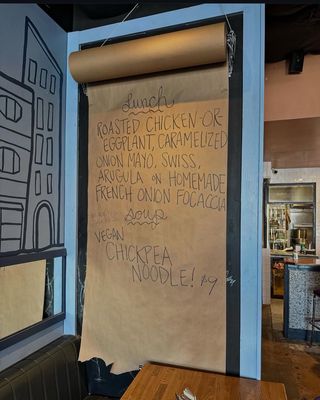 Lunch
ROASTED CHICKEN -OR-
EGGPLANT, CARAMELIZED
ONION MAYO, SWISS,
ARUGULA ON HOMEMADE
FRENCH ONION FOCACCIA
Soup
VEGAN
CHICKPEA
NOODLE! $9